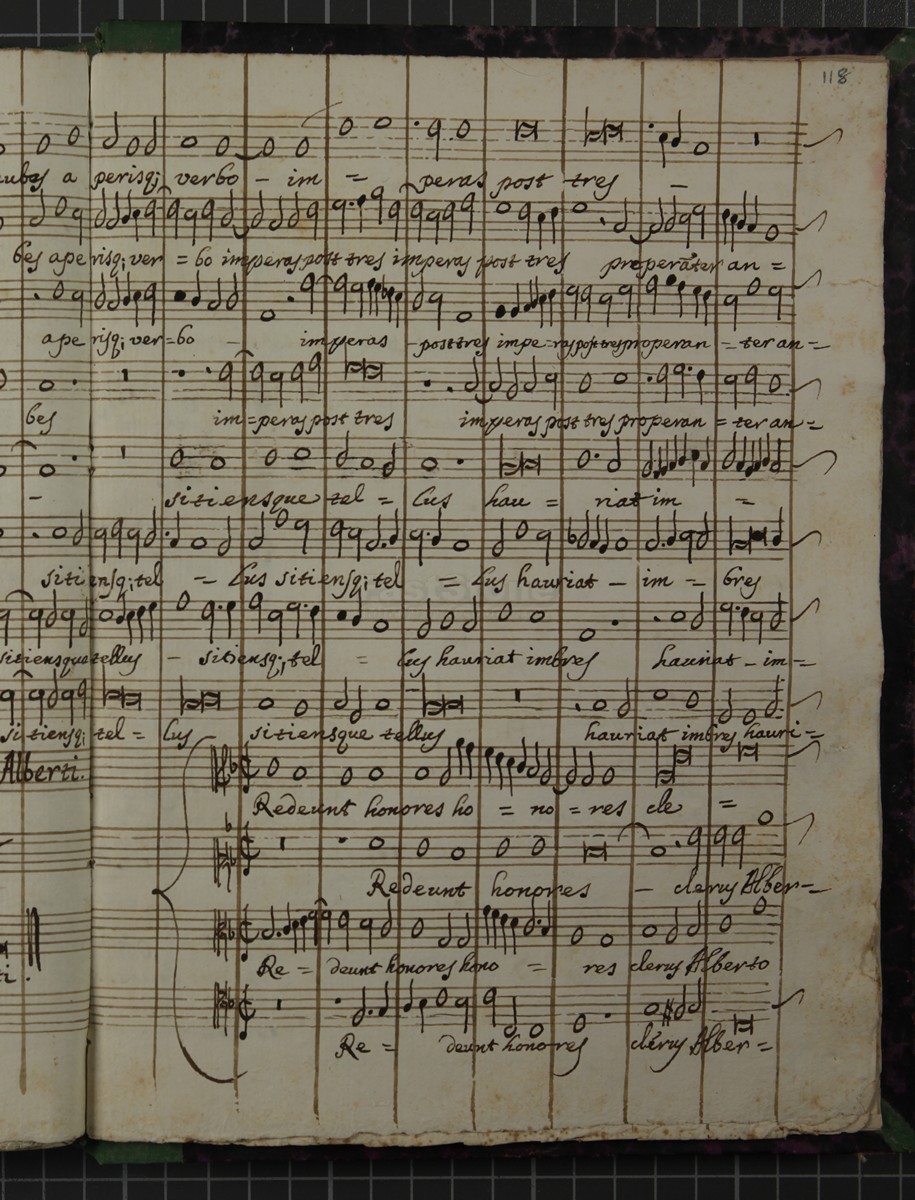 118
nubes a perisq; verbo - im = peras post tres -
bes aperisq; ver = bo imperas post tres imperas post tres properater an =
aperisq; ver = bo - imperas - post tres impe = ras post tres properan = ter an =
bes im = peras post tres imperas post tres properan = ter an =
- sitiensque tel = lus hau = riat im =
sitiensq; tel = lus sitiensq; tel = lus hauriat - im = bres
sitiensque tellus - sitiensq; tel = lus hauriat imbres hauriat - im =
sitiensq; tel = lus - sitiensque tellus hauriat imbres hauri =
Alberti.
Redeunt honores ho = no = res cle =
Redeunt honores - clerus Alber =
Re = deunt honores hono = res clerus Alberto
ti.
Re = deunt honores clerus Alber =